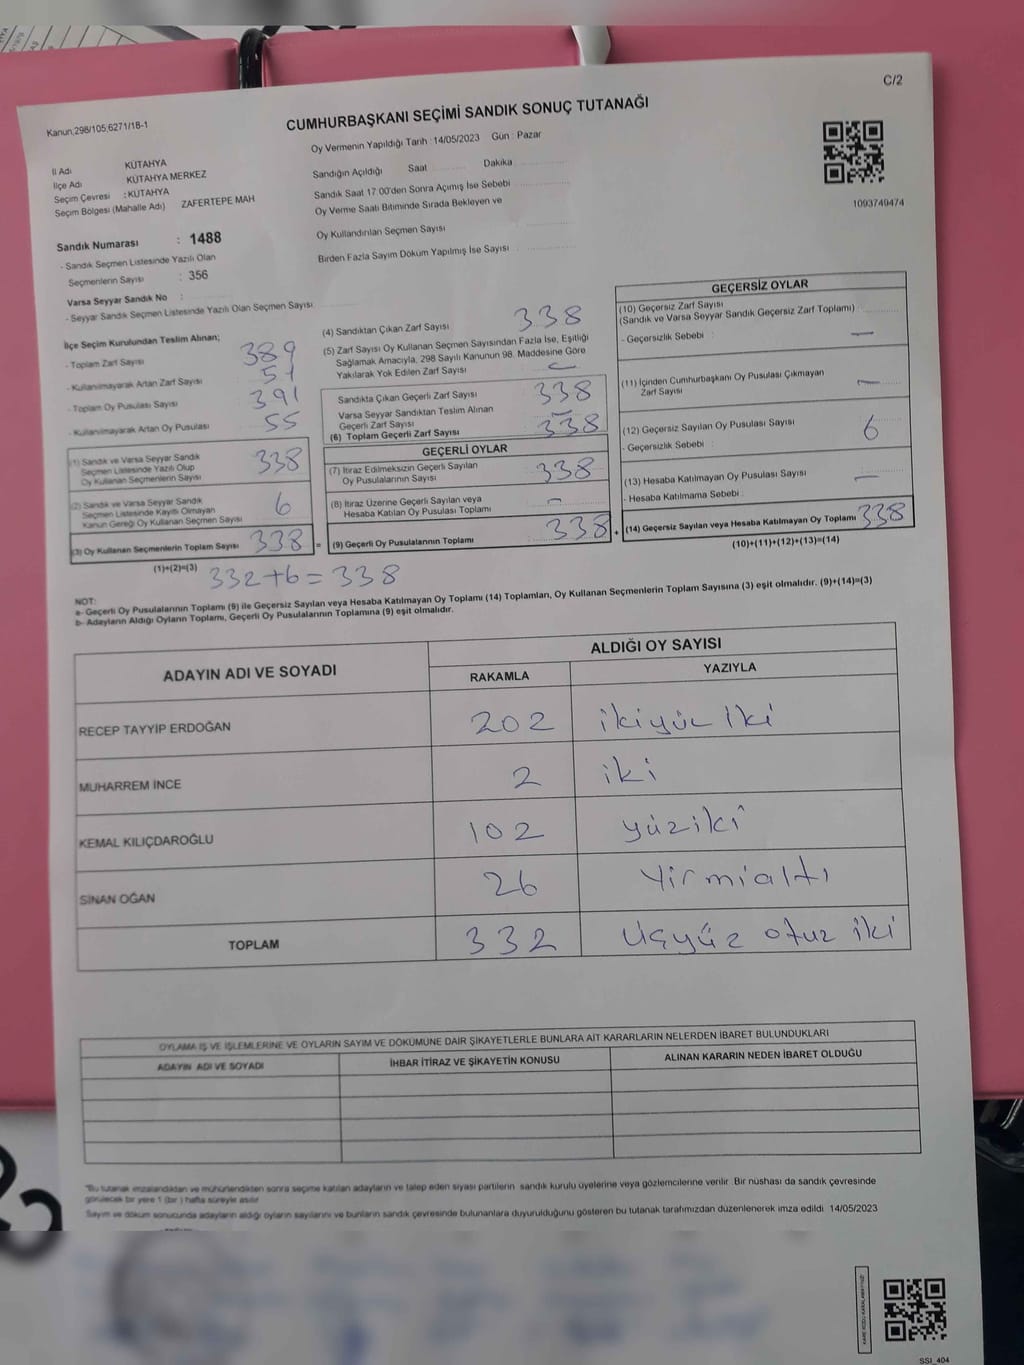 C/2
Kanun;298/105;6271/18-1
CUMHURBAŞKANI SEÇİMİ SANDIK SONUÇ TUTANAĞI
Oy Vermenin Yapıldığı Tarih : 14/05/2023 Gün : Pazar
İl Adı KÜTAHYA
İlçe Adı KÜTAHYA MERKEZ
Seçim Çevresi : KÜTAHYA
Seçim Bölgesi (Mahalle Adı) ZAFERTEPE MAH
Sandık Numarası : 1488
- Sandık Seçmen Listesinde Yazılı Olan
Seçmenlerin Sayısı : 356
Varsa Seyyar Sandık No :
- Seyyar Sandık Seçmen Listesinde Yazılı Olan Seçmen Sayısı
Sandığın Açıldığı Saat Dakika
Sandık Saat 17:00'den Sonra Açımış İse Sebebi
Oy Verme Saati Bitiminde Sırada Bekleyen ve
Oy Kullandırılan Seçmen Sayısı
Birden Fazla Sayım Döküm Yapılmış İse Sayısı
1093749474
İlçe Seçim Kurulundan Teslim Alınan;
- Toplam Zarf Sayısı 389
- Kullanılmayarak Artan Zarf Sayısı 51
- Toplam Oy Pusulası Sayısı 391
- Kullanılmayarak Artan Oy Pusulası 55
(1) Sandık ve Varsa Seyyar Sandık
Seçmen Listesinde Yazılı Olup
Oy Kullanan Seçmenlerin Sayısı 338
(2) Sandık ve Varsa Seyyar Sandık
Seçmen Listesinde Kayıtlı Olmayan
Kanun Gereği Oy Kullanan Seçmen Sayısı 6
(3) Oy Kullanan Seçmenlerin Toplam Sayısı 338 =
(1)+(2)=(3)
332+6=338
(4) Sandıktan Çıkan Zarf Sayısı 338
(5) Zarf Sayısı Oy Kullanan Seçmen Sayısından Fazla İse, Eşitliği
Sağlamak Amacıyla, 298 Sayılı Kanunun 98. Maddesine Göre
Yakılarak Yok Edilen Zarf Sayısı
Sandıkta Çıkan Geçerli Zarf Sayısı 338
Varsa Seyyar Sandıktan Teslim Alınan
Geçerli Zarf Sayısı –
(6) Toplam Geçerli Zarf Sayısı 338
GEÇERLİ OYLAR
(7) İtiraz Edilmeksizin Geçerli Sayılan
Oy Pusulalarının Sayısı 338
(8) İtiraz Üzerine Geçerli Sayılan veya
Hesaba Katılan Oy Pusulası Toplamı –
(9) Geçerli Oy Pusulalarının Toplamı 338 +
GEÇERSİZ OYLAR
(10) Geçersiz Zarf Sayısı
(Sandık ve Varsa Seyyar Sandık Geçersiz Zarf Toplamı)
- Geçersizlik Sebebi : –
(11) İçinden Cumhurbaşkanı Oy Pusulası Çıkmayan
Zarf Sayısı –
(12) Geçersiz Sayılan Oy Pusulası Sayısı 6
- Geçersizlik Sebebi :
(13) Hesaba Katılmayan Oy Pusulası Sayısı –
- Hesaba Katılmama Sebebi :
(14) Geçersiz Sayılan veya Hesaba Katılmayan Oy Toplamı 338
(10)+(11)+(12)+(13)=(14)
NOT:
a- Geçerli Oy Pusulalarının Toplamı (9) ile Geçersiz Sayılan veya Hesaba Katılmayan Oy Toplamı (14) Toplamları, Oy Kullanan Seçmenlerin Toplam Sayısına (3) eşit olmalıdır. (9)+(14)=(3)
b- Adayların Aldığı Oyların Toplamı, Geçerli Oy Pusulalarının Toplamına (9) eşit olmalıdır.
ADAYIN ADI VE SOYADI ALDIĞI OY SAYISI
RAKAMLA YAZIYLA
RECEP TAYYİP ERDOĞAN 202 ikiyüz iki
MUHARREM İNCE 2 iki
KEMAL KILIÇDAROĞLU 102 yüziki
SİNAN OĞAN 26 Yirmialtı
TOPLAM 332 Üçyüz otuz iki
OYLAMA İŞ VE İŞLEMLERİNE VE OYLARIN SAYIM VE DÖKÜMÜNE DAİR ŞİKAYETLERLE BUNLARA AİT KARARLARIN NELERDEN İBARET BULUNDUKLARI
ADAYIN ADI VE SOYADI İHBAR İTİRAZ VE ŞİKAYETİN KONUSU ALINAN KARARIN NEDEN İBARET OLDUĞU
*Bu tutanak imzalandıktan ve mühürlendikten sonra seçime katılan adayların ve talep eden siyasi partilerin sandık kurulu üyelerine veya gözlemcilerine verilir. Bir nüshası da sandık çevresinde
görülecek bir yere 1 (bir ) hafta süreyle asılır
Sayım ve döküm sonucunda adayların aldığı oyların sayılarını ve bunların sandık çevresinde bulunanlara duyurulduğunu gösteren bu tutanak tarafımızdan düzenlenerek imza edildi 14/05/2023
SSI_404